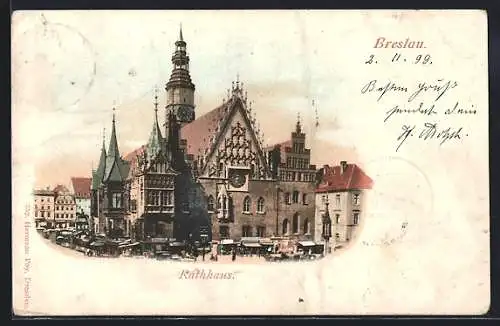 Breslau.
2. 11. 99.
Besten Gruß
sendet Dein
Rathhaus.
Hermann Poy, Dresden.